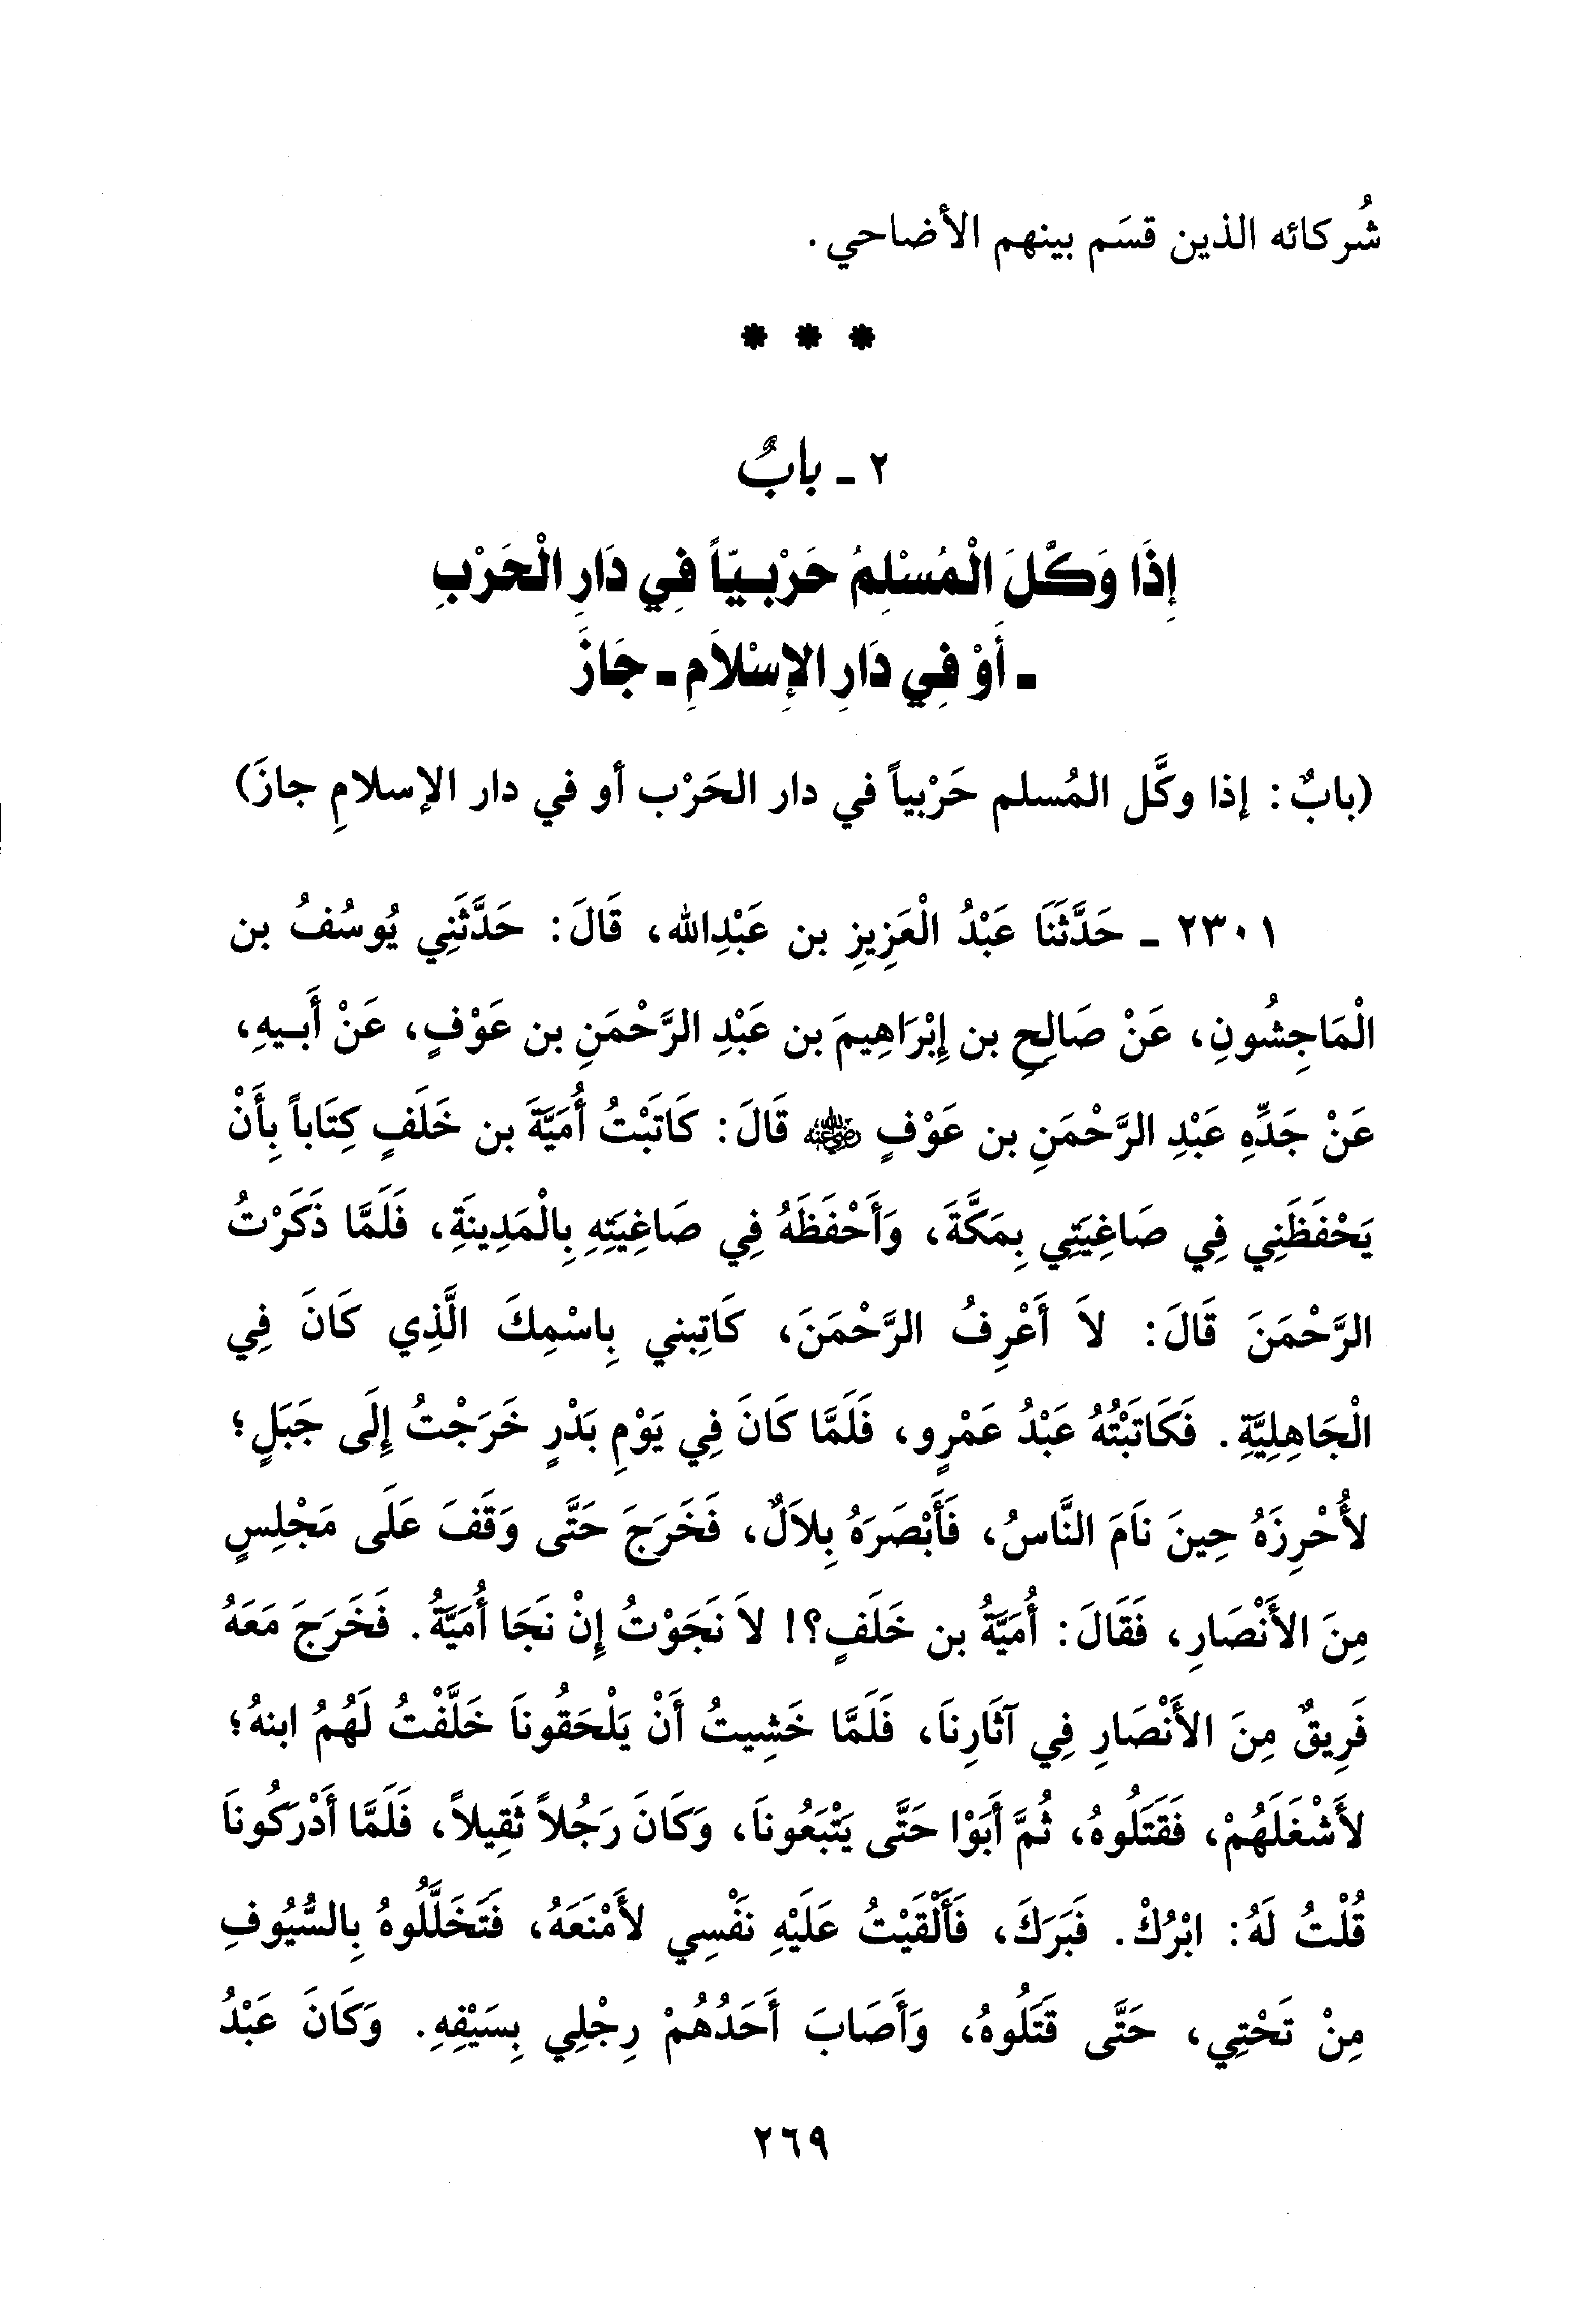 شُركائه الذين قسَم بينهم الأضاحي.
* * *
٢ ـ بابٌ
إِذَا وَكَّلَ الْمُسْلِمُ حَرْبِيّاً فِي دَارِ الْحَرْبِ
ـ أَوْ فِي دَارِ الإِسْلاَمِ ـ جَازَ
(بابٌ: إذا وكَّل المُسلم حَرْبياً في دار الحَرْب أو في دار الإسلامِ جازَ)
٢٣٠١ ـ حَدَّثَنَا عَبْدُ الْعَزِيزِ بن عَبْدِالله، قَالَ: حَدَّثَنِي يُوسُفُ بن
الْمَاجِشُونِ، عَنْ صَالِحِ بن إِبْرَاهِيمَ بن عَبْدِ الرَّحْمَنِ بن عَوْفٍ، عَنْ أَبِيهِ،
عَنْ جَدِّهِ عَبْدِ الرَّحْمَنِ بن عَوْفٍ رضي الله عنه قَالَ: كَاتَبْتُ أُمَيَّةَ بن خَلَفٍ كِتَاباً بِأَنْ
يَحْفَظَنِي فِي صَاغِيَتِي بِمَكَّةَ، وَأَحْفَظَهُ فِي صَاغِيَتِهِ بِالْمَدِينَةِ، فَلَمَّا ذَكَرْتُ
الرَّحْمَنَ قَالَ: لاَ أَعْرِفُ الرَّحْمَنَ، كَاتِبْنِي بِاسْمِكَ الَّذِي كَانَ فِي
الْجَاهِلِيَّةِ. فَكَاتَبْتُهُ عَبْدُ عَمْرٍو، فَلَمَّا كَانَ فِي يَوْمِ بَدْرٍ خَرَجْتُ إِلَى جَبَلٍ؛
لأُحْرِزَهُ حِينَ نَامَ النَّاسُ، فَأَبْصَرَهُ بِلاَلٌ، فَخَرَجَ حَتَّى وَقَفَ عَلَى مَجْلِسٍ
مِنَ الأَنْصَارِ، فَقَالَ: أُمَيَّةُ بن خَلَفٍ؟! لاَ نَجَوْتُ إِنْ نَجَا أُمَيَّةُ. فَخَرَجَ مَعَهُ
فَرِيقٌ مِنَ الأَنْصَارِ فِي آثَارِنَا، فَلَمَّا خَشِيتُ أَنْ يَلْحَقُونَا خَلَّفْتُ لَهُمُ ابنهُ؛
لأَشْغَلَهُمْ، فَقَتَلُوهُ، ثُمَّ أَبَوْا حَتَّى يَتْبَعُونَا، وَكَانَ رَجُلاً ثَقِيلاً، فَلَمَّا أَدْرَكُونَا
قُلْتُ لَهُ: ابْرُكْ. فَبَرَكَ، فَأَلْقَيْتُ عَلَيْهِ نَفْسِي لأَمْنَعَهُ، فَتَخَلَّلُوهُ بِالسُّيُوفِ
مِنْ تَحْتِي، حَتَّى قَتَلُوهُ، وَأَصَابَ أَحَدُهُمْ رِجْلِي بِسَيْفِهِ. وَكَانَ عَبْدُ
٢٦٩